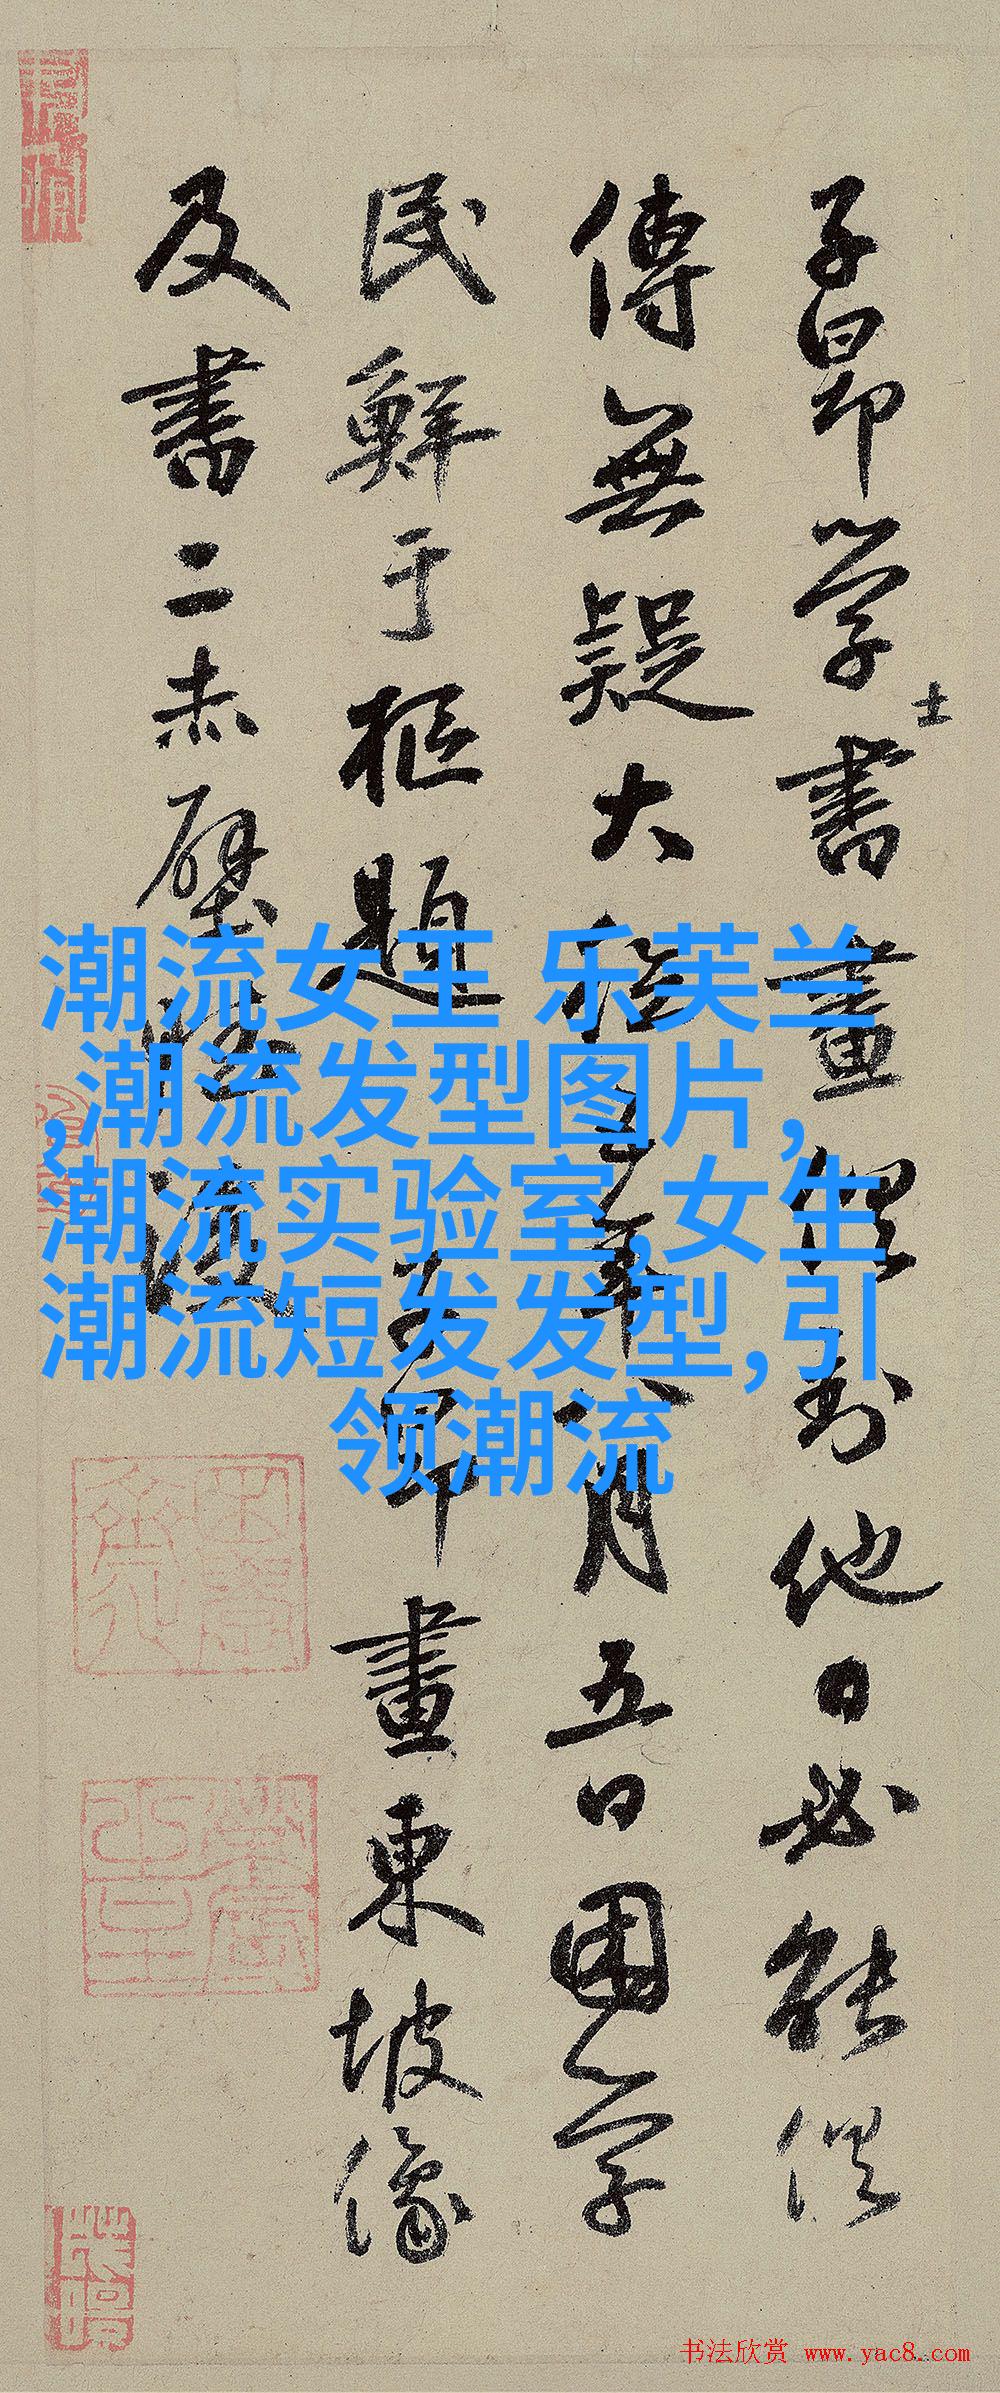 子昂學士書畫俱到他日必能俱
傳無疑大德五年八月五日困學
民鮮于樞題子昂畫東坡像
及書二赤壁賦後
潮流女王 乐芙兰
,潮流发型图片,
潮流实验室,女生
潮流短发发型,引
领潮流
书法欣赏 www.yac8.com